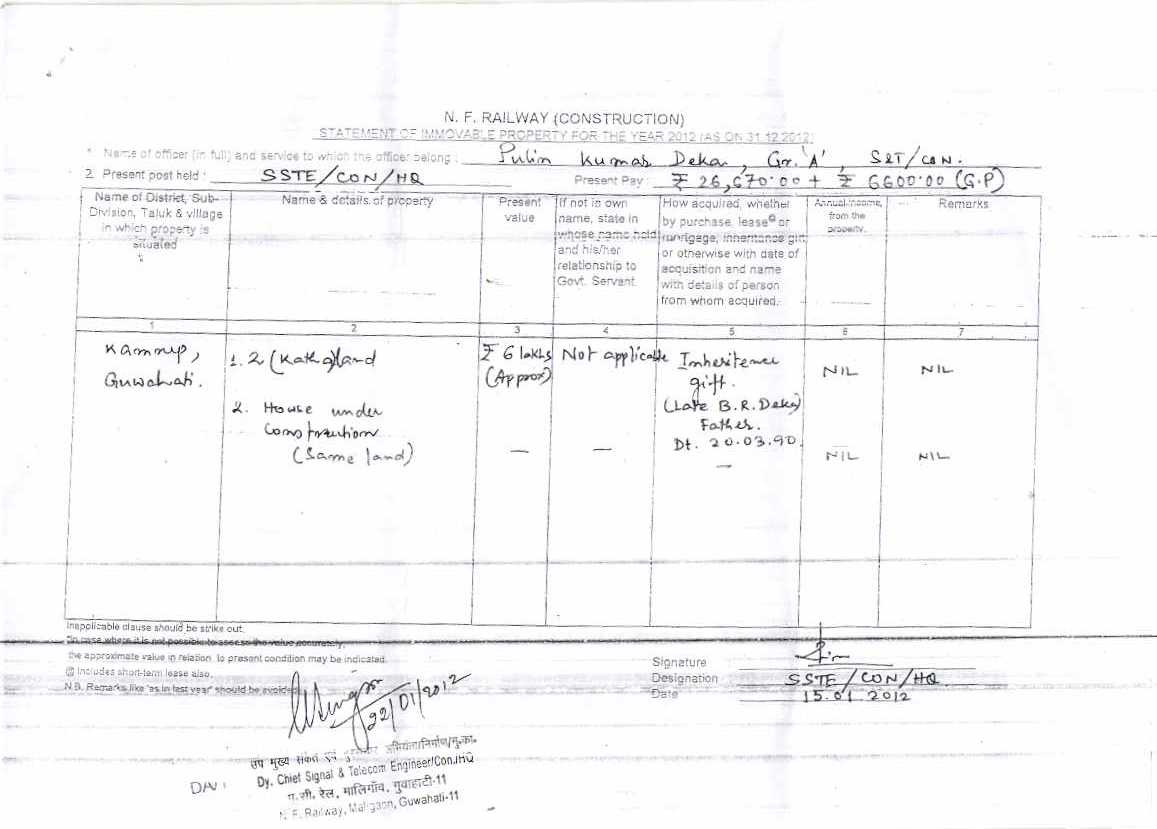 N. F. RAILWAY (CONSTRUCTION)
STATEMENT OF IMMOVABLE PROPERTY FOR THE YEAR 2012 (AS ON 31.12.2012)
Name of officer (in full) and service to which the officer belong : Pulin Kumar Deka, Gr. 'A', S&T/CON.
2. Present post held : SSTE/CON/HQ Present Pay : ₹ 26,670.00 + ₹ 6600.00 (G.P)
Name of District, Sub-Division, Taluk & village in which property is situated
Name & details of property
Present value
If not in own name, state in whose name held and his/her relationship to Govt. Servant.
How acquired, whether by purchase, lease@ or mortgage, inheritance gift, or otherwise with date of acquisition and name with details of person from whom acquired.
Annual income, from the property.
Remarks
1 2 3 4 5 6 7
Kamrup, Guwahati.
1. 2 (Katha) land
₹ 6 lakhs (Approx)
Not applicable
Inheritence gift. (Late B.R. Deka) Father. Dt. 20.03.90.
NIL
NIL
2. House under Constrution (Same land)
—
—
—
NIL
NIL
Inapplicable clause should be strike out.
*In case where it is not possible to assess the value accurately,
the approximate value in relation to present condition may be indicated.
@ Includes short-term lease also.
N.B. Remarks like 'as in last year' should be avoided
Signature
Designation SSTE/CON/HQ
Date 15.01.2012
22/01/2012
उप मुख्य संकेत एवं अभियन्ता/निर्माण/मु.का.
Dy. Chief Signal & Telecom Engineer/Con./HQ
रेल, मालिगाँव, गुवाहाटी-11
N. F. Railway, Maligaon, Guwahati-11